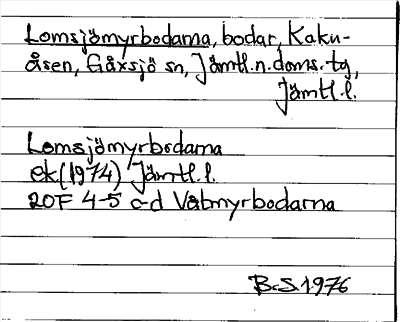 Lomsjömyrbodarna, bodar, Kaku-
åsen, Gåxsjö sn, Jämtl.n.doms.tg,
Jämtl.l.
Lomsjömyrbodarna
ek(1974) Jämtl.l.
20F 4-5 c-d Våbmyrbodarna
B.S.1976